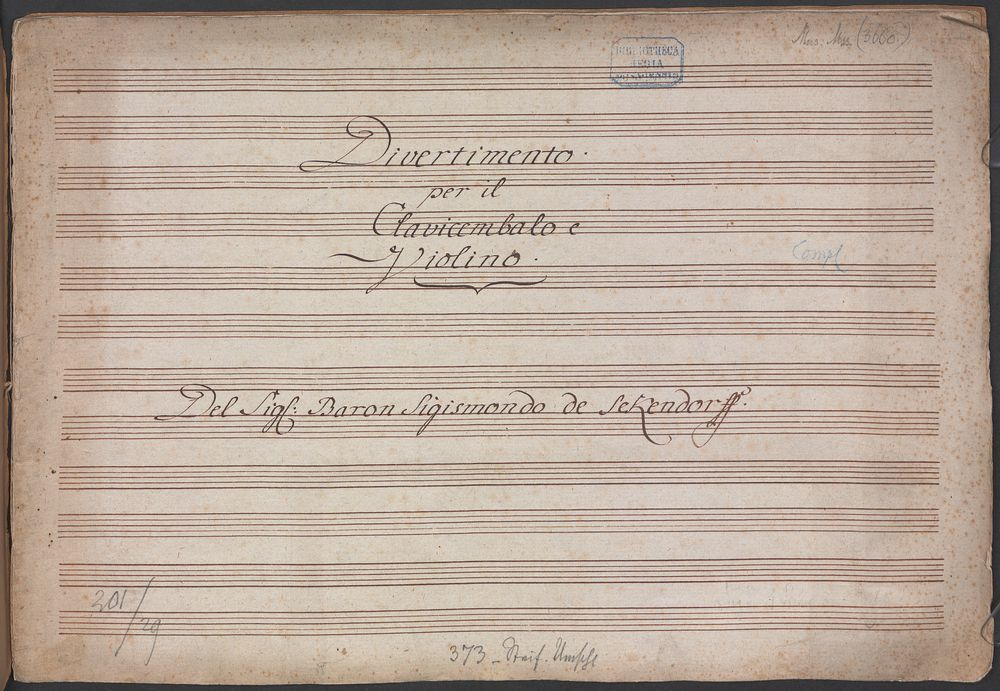 Mus. Mss. (3660.)
BIBLIOTHECA
REGIA
MONACENSIS
Divertimento.
per il
Clavicembalo e
Violino.
Compl
Del Sigl: Baron Sigismondo de Sekendorff.
301/29
373 - Steif. Umschl